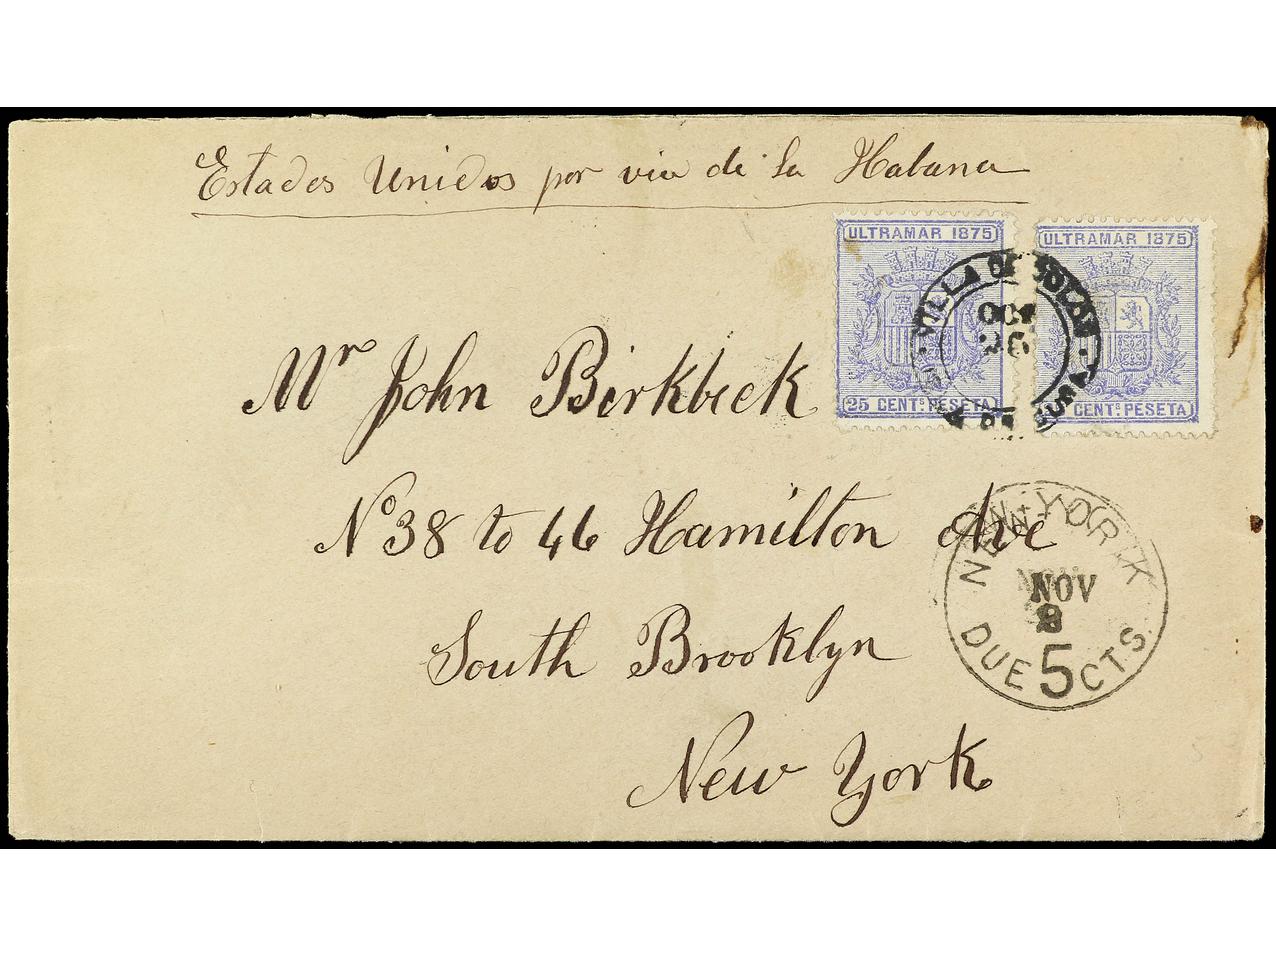 Estados Unidos por via de la Habana
ULTRAMAR 1875
ULTRAMAR 1875
VILLA DE COLON
OCT
26
25 CENTS. PESETA
CENTS. PESETA
Mr John Birkbeck
No 38 to 46 Hamilton Ave
South Brooklyn
New York
NEW YORK
NOV
8
DUE 5 CTS